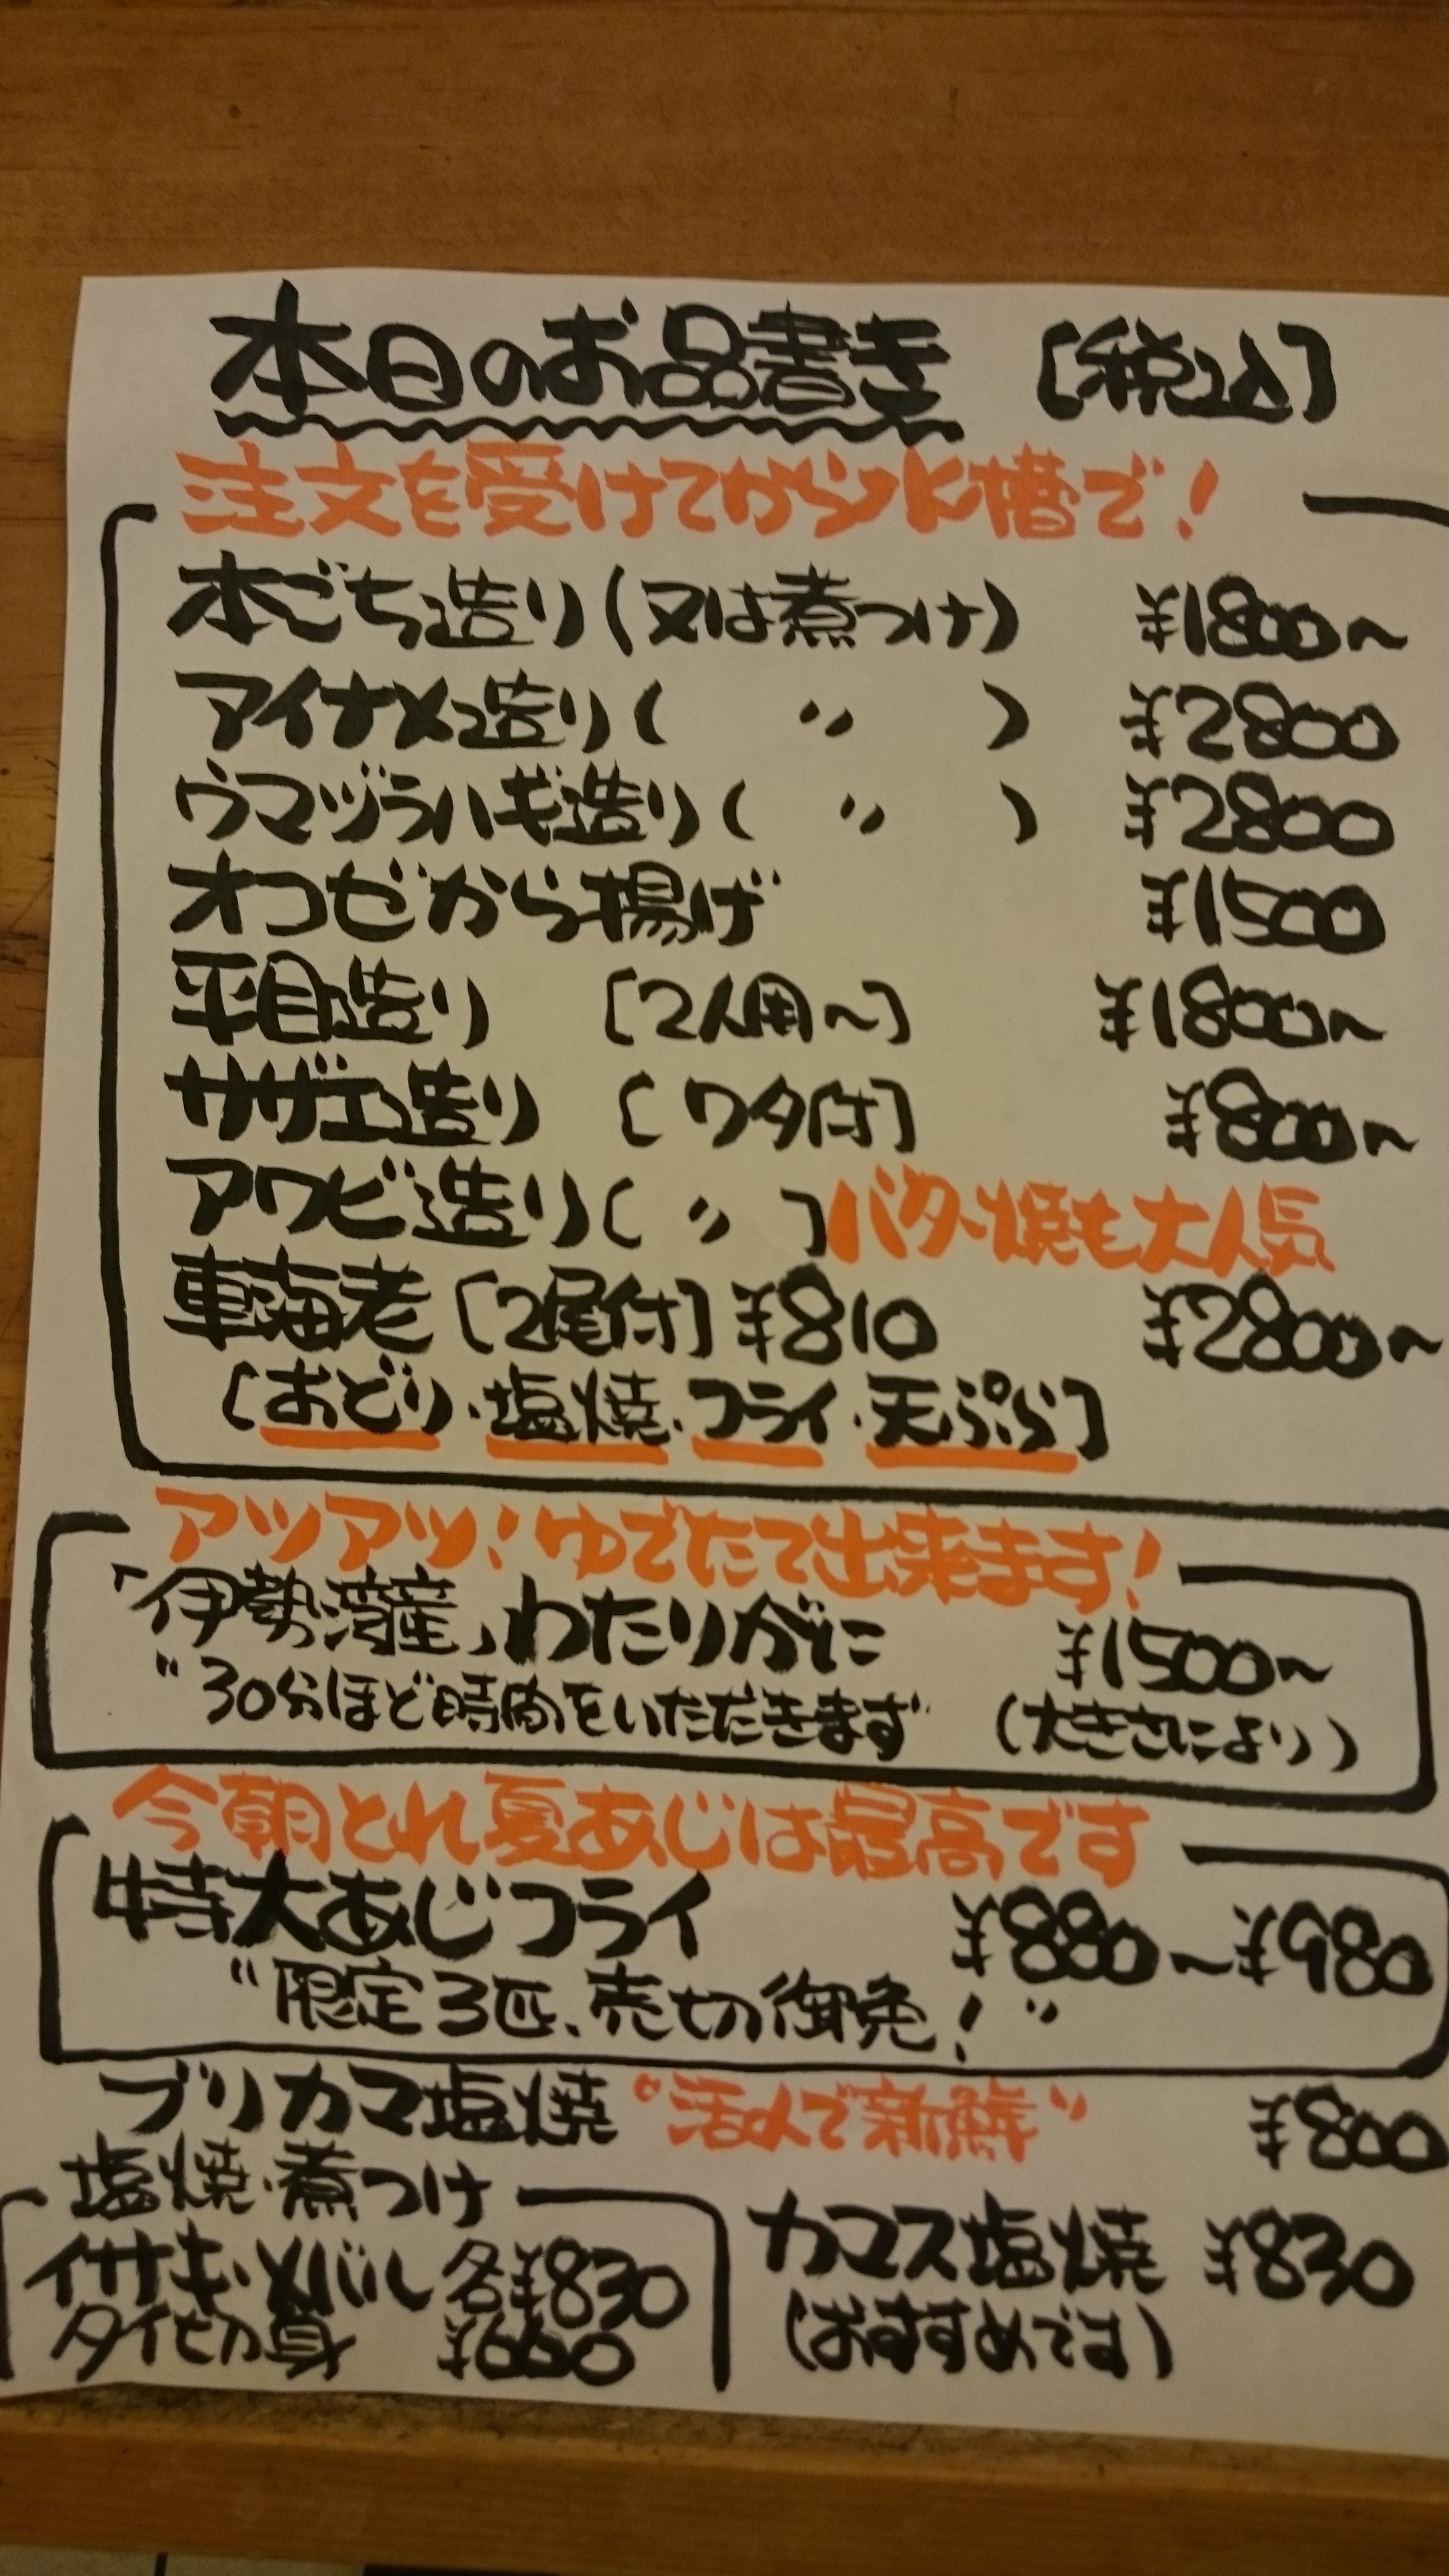 本日のお品書き [税込]
注文を受けてから水槽で!
本ごち造り(又は煮つけ) ¥1800~
アイナメ造り( 〃 ) ¥2800
ウマヅラハギ造り( 〃 ) ¥2800
オコゼから揚げ ¥1500
平目造り [2人用~] ¥1800~
サザエ造り [ワタ付] ¥800~
アワビ造り[ 〃 ]バター焼も大人気
車海老[2尾付]¥810 ¥2800~
[おどり・塩焼・フライ・天ぷら]
アツアツ!ゆでたて出来ます!
「伊勢湾産」わたりがに ¥1500~
"30分ほど時間をいただきます" (大きさにより)
今朝とれ夏あじは最高です
特大あじフライ ¥880~¥980
"限定3匹、売切御免!"
ブリカマ塩焼 "活〆で新鮮" ¥800
塩焼・煮つけ
イサキ・メバル 各¥830
タイ切身
カマス塩焼 ¥830
(おすすめです)